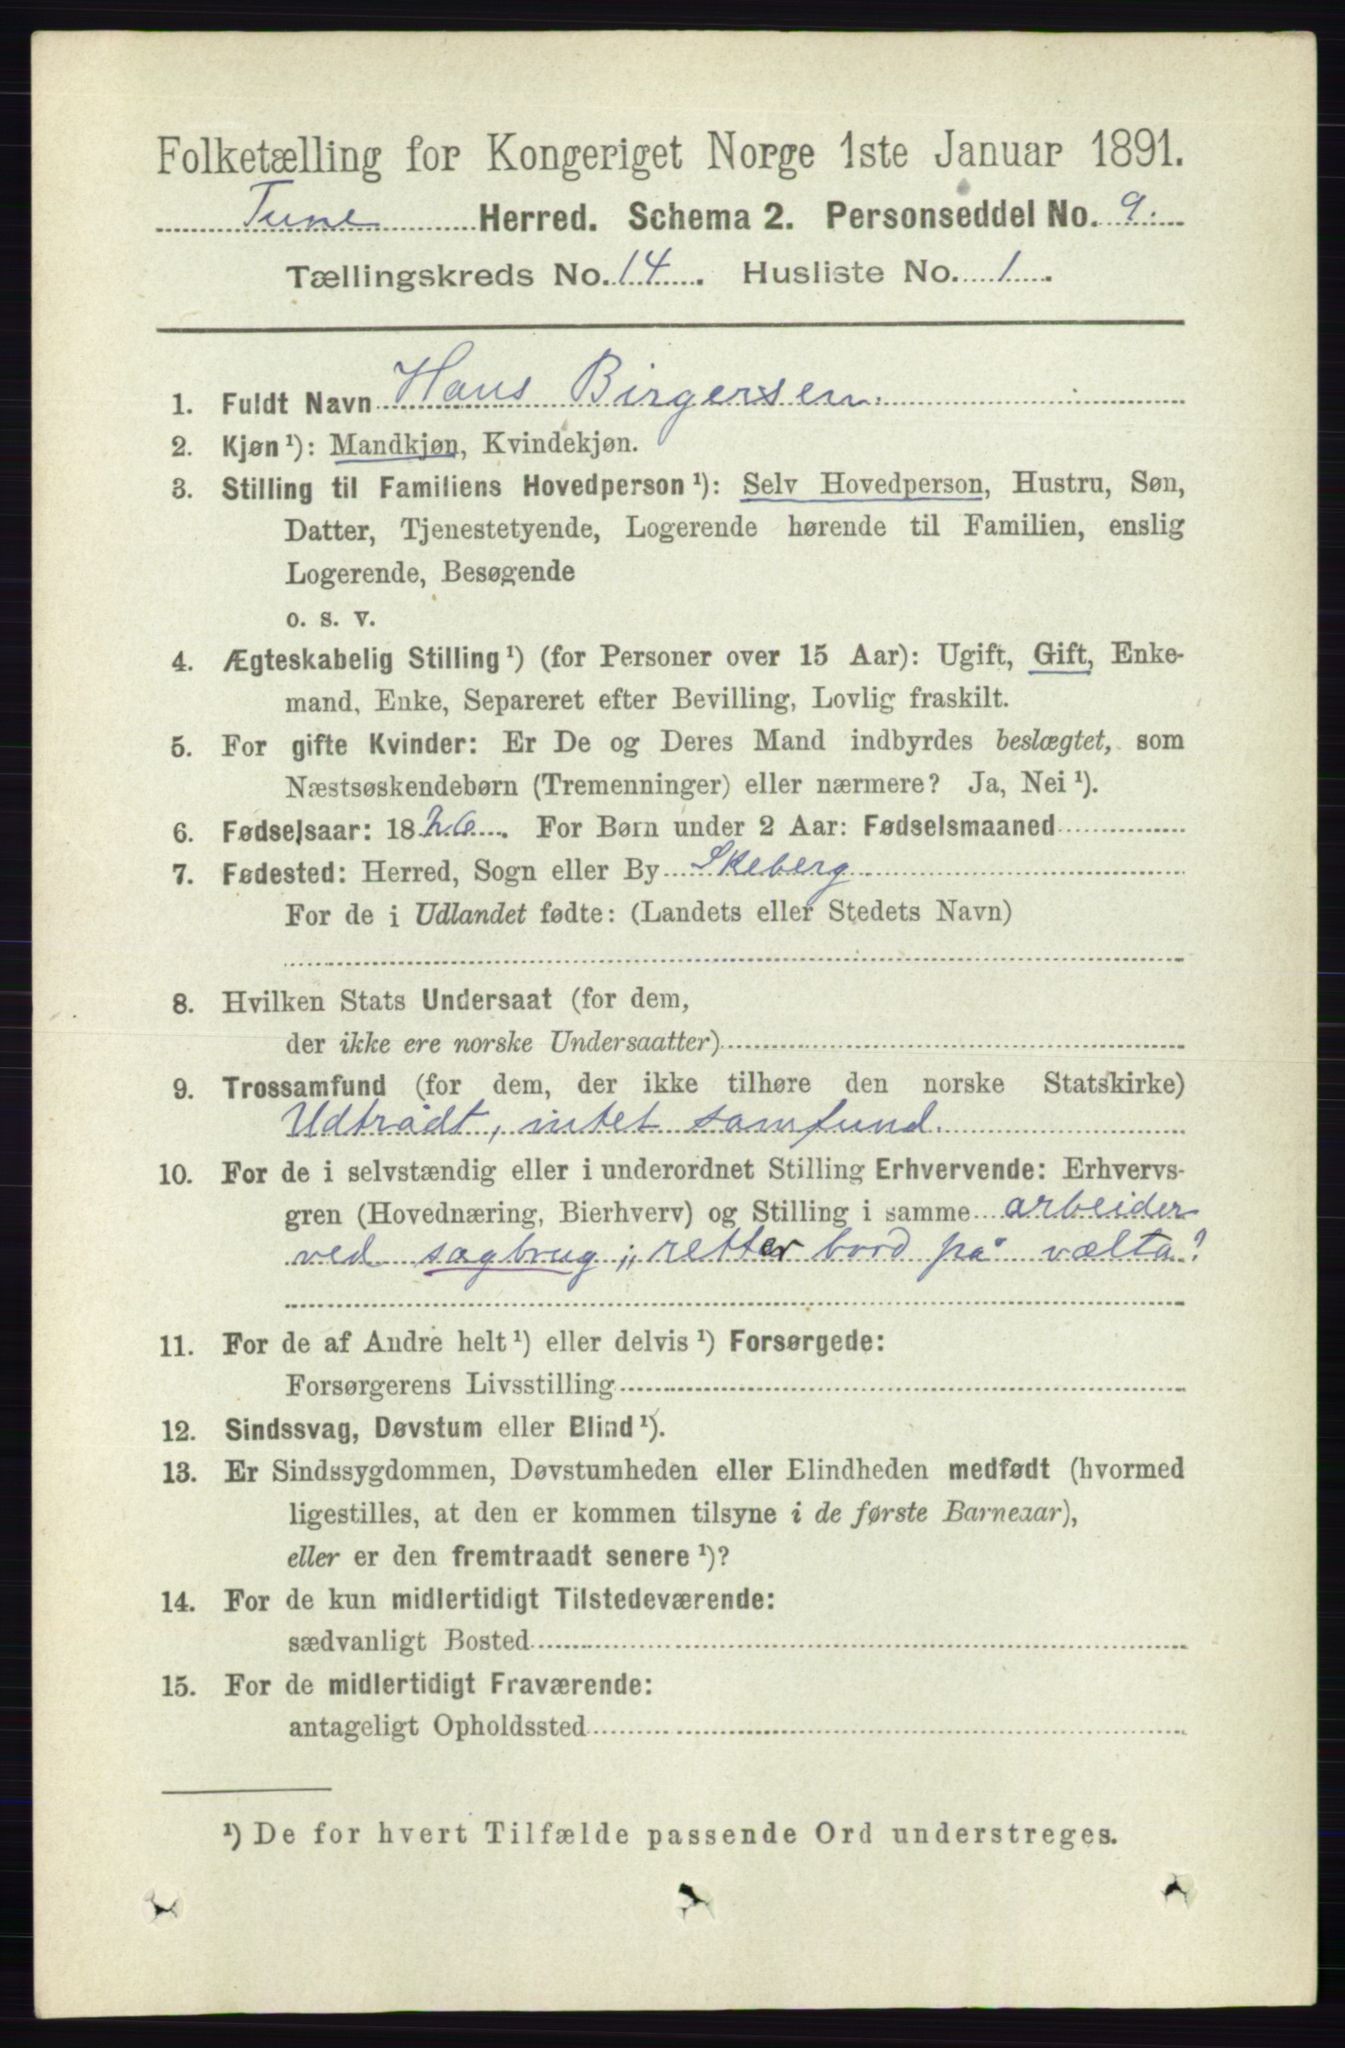 Folketælling for Kongeriget Norge 1ste Januar 1891.
Tune Herred. Schema 2. Personseddel No. 9.
Tællingskreds No. 14. Husliste No. 1.
1. Fuldt Navn Hans Birgersen.
2. Kjøn ¹): Mandkjøn, Kvindekjøn.
3. Stilling til Familiens Hovedperson ¹): Selv Hovedperson, Hustru, Søn,
Datter, Tjenestetyende, Logerende hørende til Familien, enslig
Logerende, Besøgende
o. s. v.
4. Ægteskabelig Stilling ¹) (for Personer over 15 Aar): Ugift, Gift, Enke-
mand, Enke, Separeret efter Bevilling, Lovlig fraskilt.
5. For gifte Kvinder: Er De og Deres Mand indbyrdes beslægtet, som
Næstsøskendebørn (Tremenninger) eller nærmere? Ja, Nei ¹).
6. Fødselsaar: 1826. For Børn under 2 Aar: Fødselsmaaned
7. Fødested: Herred, Sogn eller By Skeberg
For de i Udlandet fødte: (Landets eller Stedets Navn)
8. Hvilken Stats Undersaat (for dem,
der ikke ere norske Undersaatter)
9. Trossamfund (for dem, der ikke tilhøre den norske Statskirke)
Udtrådt, intet samfund.
10. For de i selvstændig eller i underordnet Stilling Erhvervende: Erhvervs-
gren (Hovednæring, Bierhverv) og Stilling i samme arbeider
ved sagbrug; retter bord på vælta?
11. For de af Andre helt ¹) eller delvis ¹) Forsørgede:
Forsørgerens Livsstilling
12. Sindssvag, Døvstum eller Blind ¹).
13. Er Sindssygdommen, Døvstumheden eller Blindheden medfødt (hvormed
ligestilles, at den er kommen tilsyne i de første Barneaar),
eller er den fremtraadt senere ¹)?
14. For de kun midlertidigt Tilstedeværende:
sædvanligt Bosted
15. For de midlertidigt Fraværende:
antageligt Opholdssted
¹) De for hvert Tilfælde passende Ord understreges.